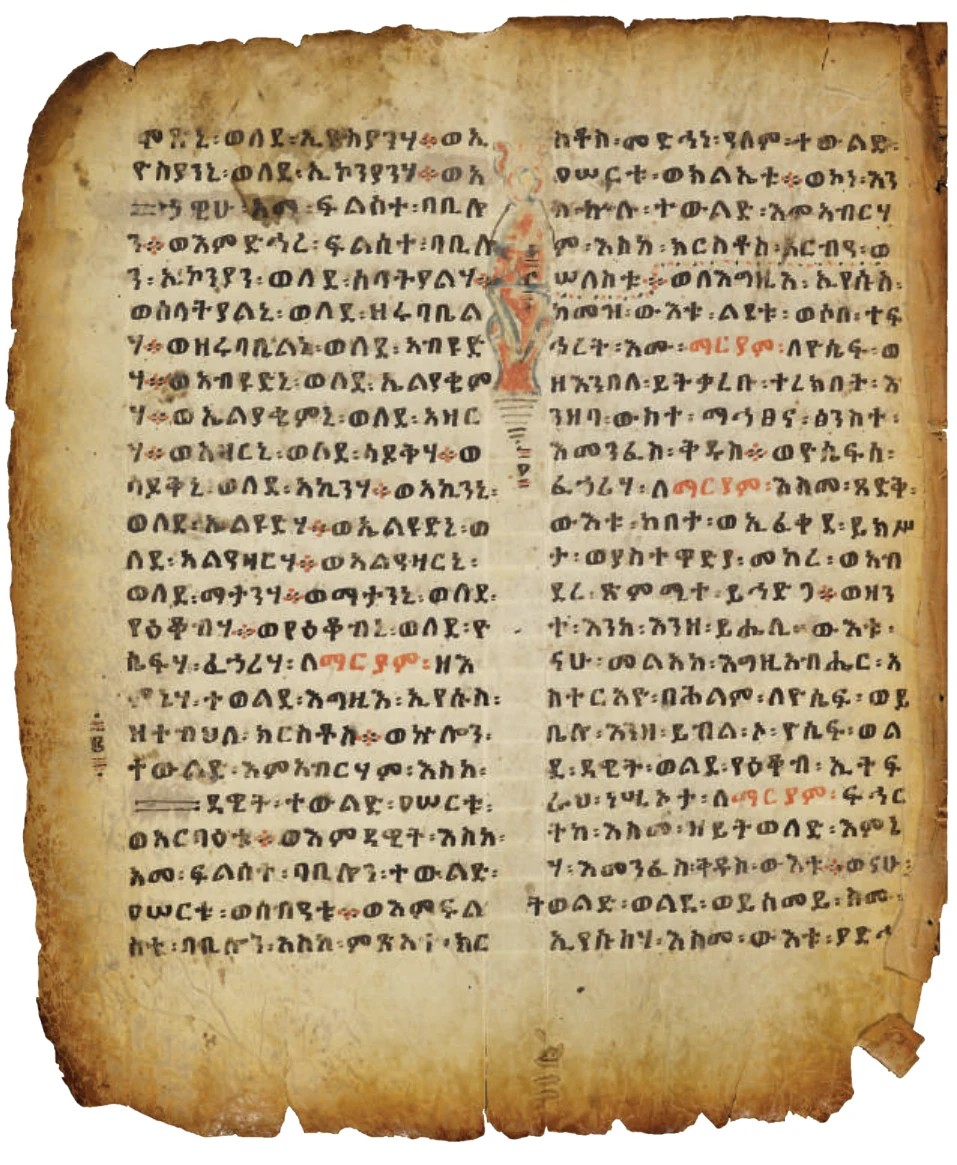 ሞጽኒ፡ወለደ፡ኢዮስያንሃ፨ወኢ
ዮስያንኒ፡ወለደ፡ኢኮንያንሃ፨ወእ
ኀዊሁ፡አመ፡ፍልሰተ፡ባቢሎ
ን፨ወእምድኅረ፡ፍልሰተ፡ባቢሎ
ን፡ኢኮንያን፡ወለደ፡ሰላትያልሃ፨
ወሰላትያልኒ፡ወለደ፡ዘሩባቤል
ሃ፨ወዘሩባቤልኒ፡ወለደ፡አብዩድ
ሃ፨ወአብዩድኒ፡ወለደ፡ኤልያቄም
ሃ፨ወኤልያቄምኒ፡ወለደ፡አዛር
ሃ፨ወአዛርኒ፡ወለደ፡ሳዶቅሃ፨ወ
ሳዶቅኒ፡ወለደ፡አኪንሃ፨ወአኪንኒ፡
ወለደ፡ኤልዩድሃ፨ወኤልዩድኒ፡ወ
ለደ፡አልዓዛርሃ፨ወአልዓዛርኒ፡
ወለደ፡ማታንሃ፨ወማታንኒ፡ወለደ፡
ያዕቆብሃ፨ወያዕቆብኒ፡ወለደ፡ዮ
ሴፍሃ፡ፈኃሪሃ፡ለማርያም፡ዘእ
ምኔሃ፡ተወልደ፡እግዚእ፡ኢየሱስ፡
ዘተብህለ፡ክርስቶስ፨ወኵሎን፡
ትውልድ፡እምአብርሃም፡እስከ፡
ዳዊት፡ተውልድ፡፲ወ፬ቱ፡
ወአርባዕቱ፨ወእምዳዊት፡እስከ፡
አመ፡ፍልሰተ፡ባቢሎን፡ተውልድ፡
ዐሠርቱ፡ወሰብዓቱ፨ወእምፍል
ሰቱ፡ባቢሎን፡እስከ፡ምጽአተ፡ክር
ስቶስ፡መድኅነ፡ዓለም፡ተውልድ፡
ዐሠርቱ፡ወክልኤቱ፨ወኮነ፡እን
ከ፡ኵሉ፡ተውልድ፡እምአብርሃ
ም፡እስከ፡ክርስቶስ፡አርብዓ፡ወ
ሠለስቱ፨ወለእግዚእ፡ኢየሱስ፡
ከመዝ፡ውእቱ፡ልደቱ፡ወሶበ፡ተፍ
ኅረት፡እሙ፡ማርያም፡ለዮሴፍ፡ወ
ዘእንበለ፡ይትቃረቡ፡ተረክበት፡እ
ንዘባ፡ውስተ፡ማኅፀና፡ፅንስት፡
እመንፈስ፡ቅዱስ፨ወዮሴፍሰ፡
ፈኃሪሃ፡ለማርያም፡እስመ፡ጻድቅ፡
ውእቱ፡ከበተ፡ወኢፈቀደ፡ይክሥ
ታ፡ወያስተዋድያ፡መከረ፡ወአብ
ደረ፡ጽምሚተ፡ይኅድጋ፨ወዘን
ተ፡እንከ፡እንዘ፡ይሔሊ፡ውእቱ፡
ናሁ፡መልአከ፡እግዚአብሔር፡አ
ስተርአዮ፡በሕልም፡ለዮሴፍ፡ወይ
ቤሎ፡እንዘ፡ይብል፡ኦ፡ዮሴፍ፡ወል
ደ፡ዳዊት፡ወልደ፡የዕቆብ፡ኢትፍ
ራህ፡ነሢኦታ፡ለማርያም፡ፍኅር
ትከ፡እስመ፡ዘይትወለድ፡እምኔ
ሃ፡እመንፈስ፡ቅዱስ፡ውእቱ፨ወናሁ፡
ትወልድ፡ወልደ፡ወይሰመይ፡ስሙ፡
ኢየሱስሃ፡እስመ፡ውእቱ፡ያድኅ